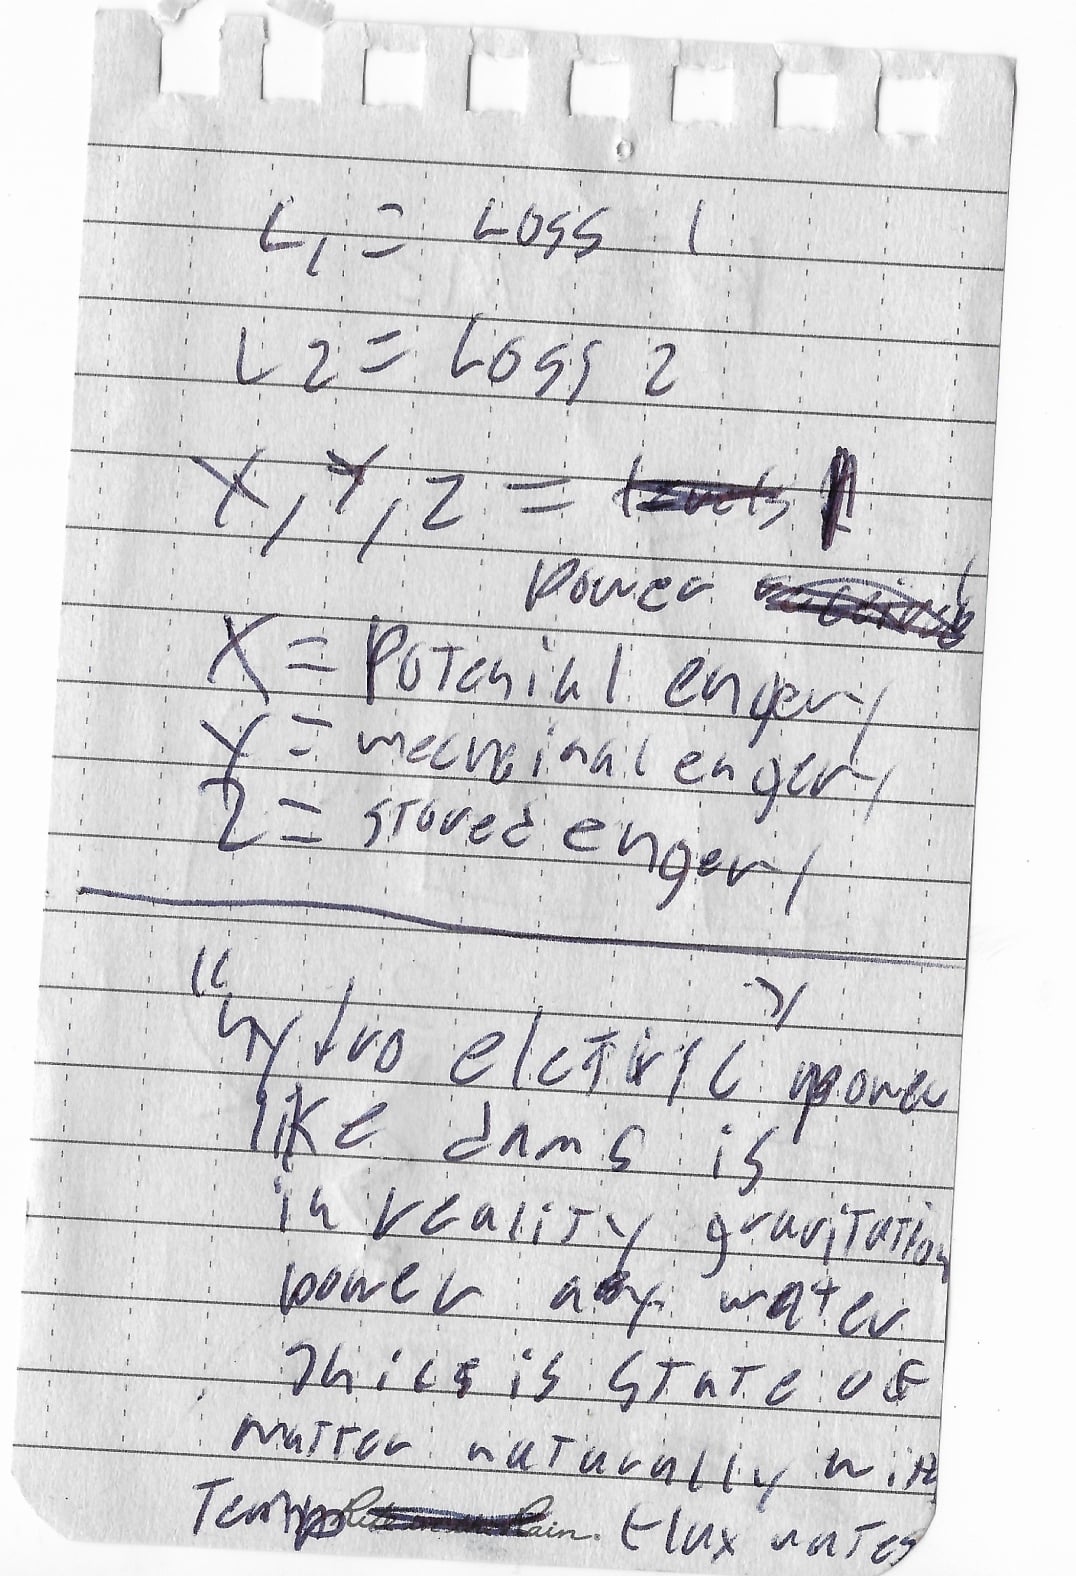 L1 = Loss 1
L2 = Loss 2
X, Y, Z = levels
Power
X = Potenial engery
Y = mecnainal engery
Z = stored engery
"hydro elctiric" power
like dams is
in reality gravitation
power water
is state of
matter naturally with
Temp flux rates